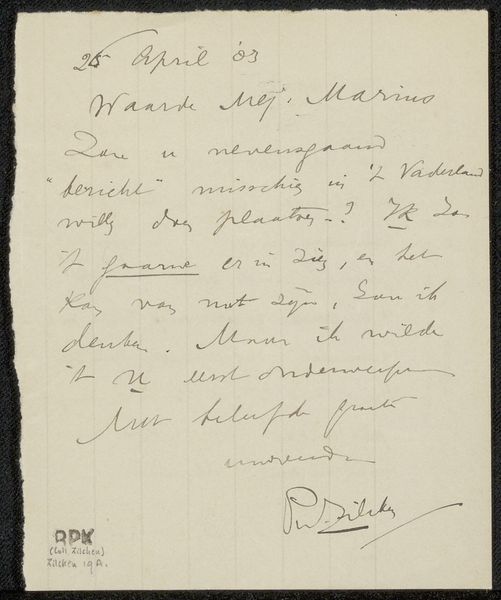 25 April '03
Waarde Mej. Marius
Zou u nevensgaand
"bericht" misschien in 't Vaderland
willen doen plaatsen? Ik zou
't gaarne er in zien, en het
kan van nut zijn, zou ik
denken. Maar ik wilde
't u eerst onderwerpen
Met beleefde groete
Ph. Zilcken
RPK
(Coll Zilcken)
Zilcken 19 A.